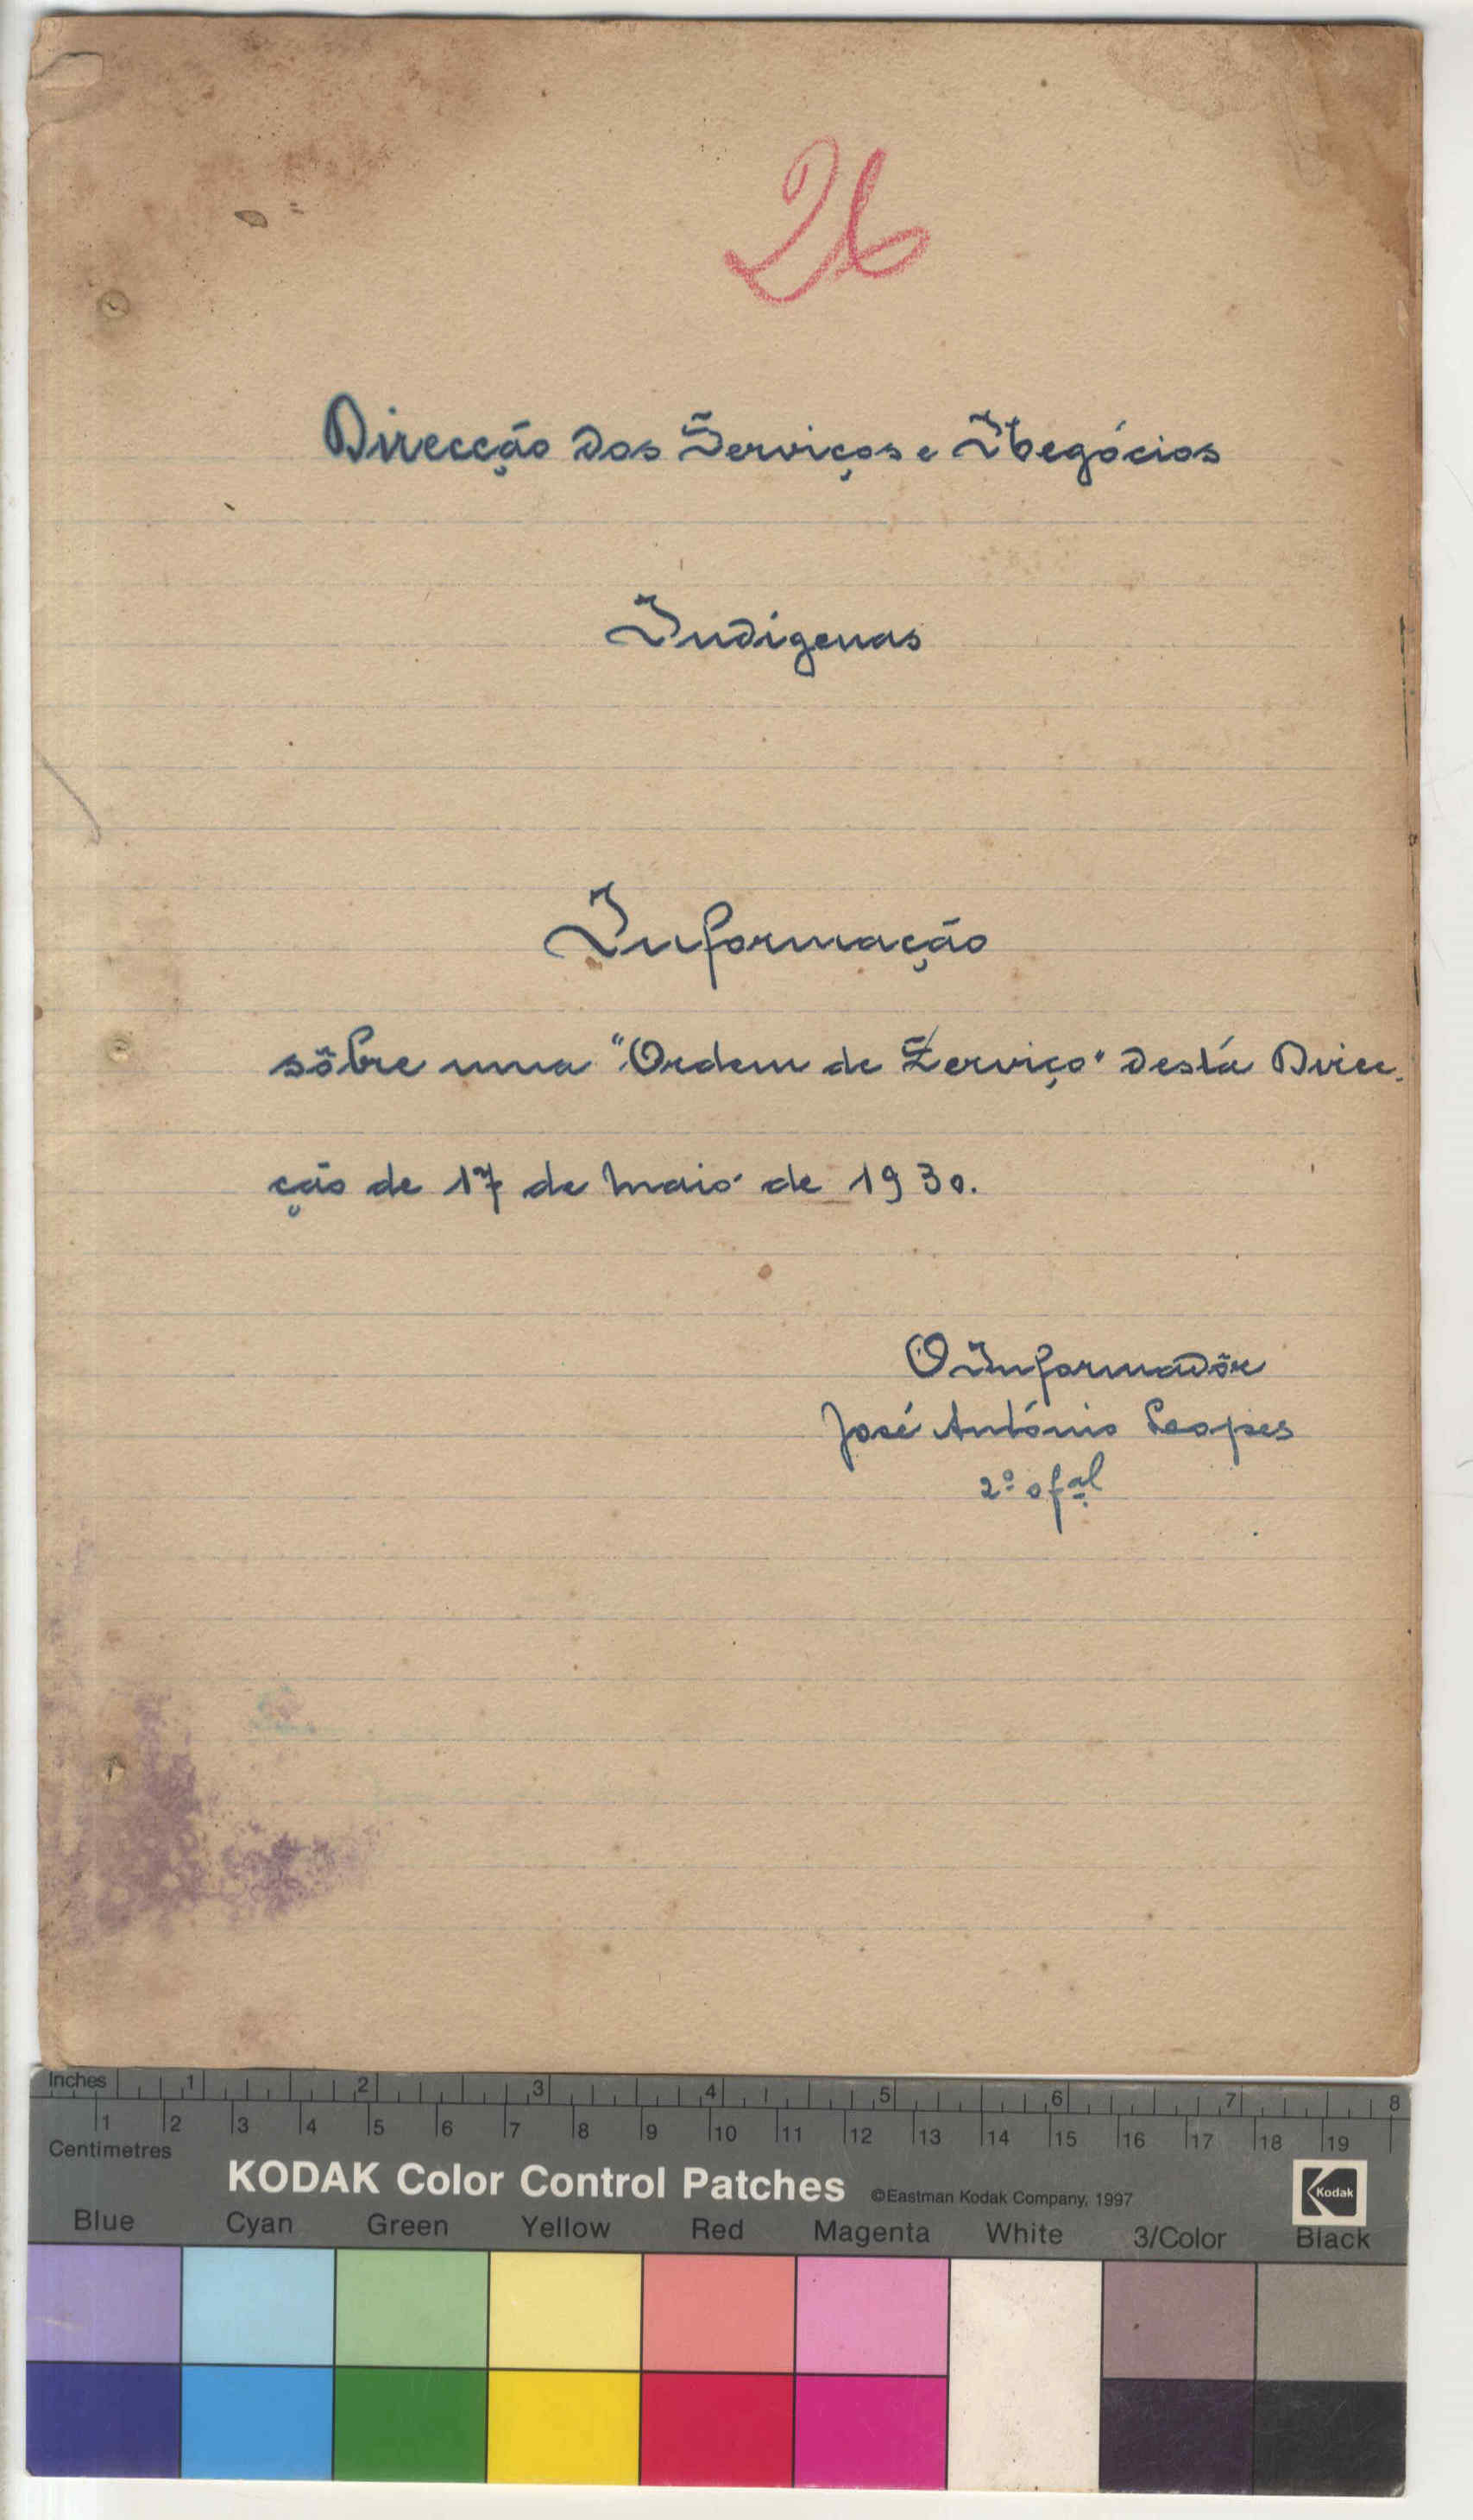 26
Direcção dos Serviços e Negócios
Indigenas
Informação
sôbre uma "Ordem de Serviço" desta Direc-
ção de 17 de Maio de 1930.
O Informadôr
José António Lopes
2º ofal
Inches 1 2 3 4 5 6 7 8
1 2 3 4 5 6 7 8 9 10 11 12 13 14 15 16 17 18 19
Centimetres
KODAK Color Control Patches ©Eastman Kodak Company, 1997 Kodak
Blue Cyan Green Yellow Red Magenta White 3/Color Black